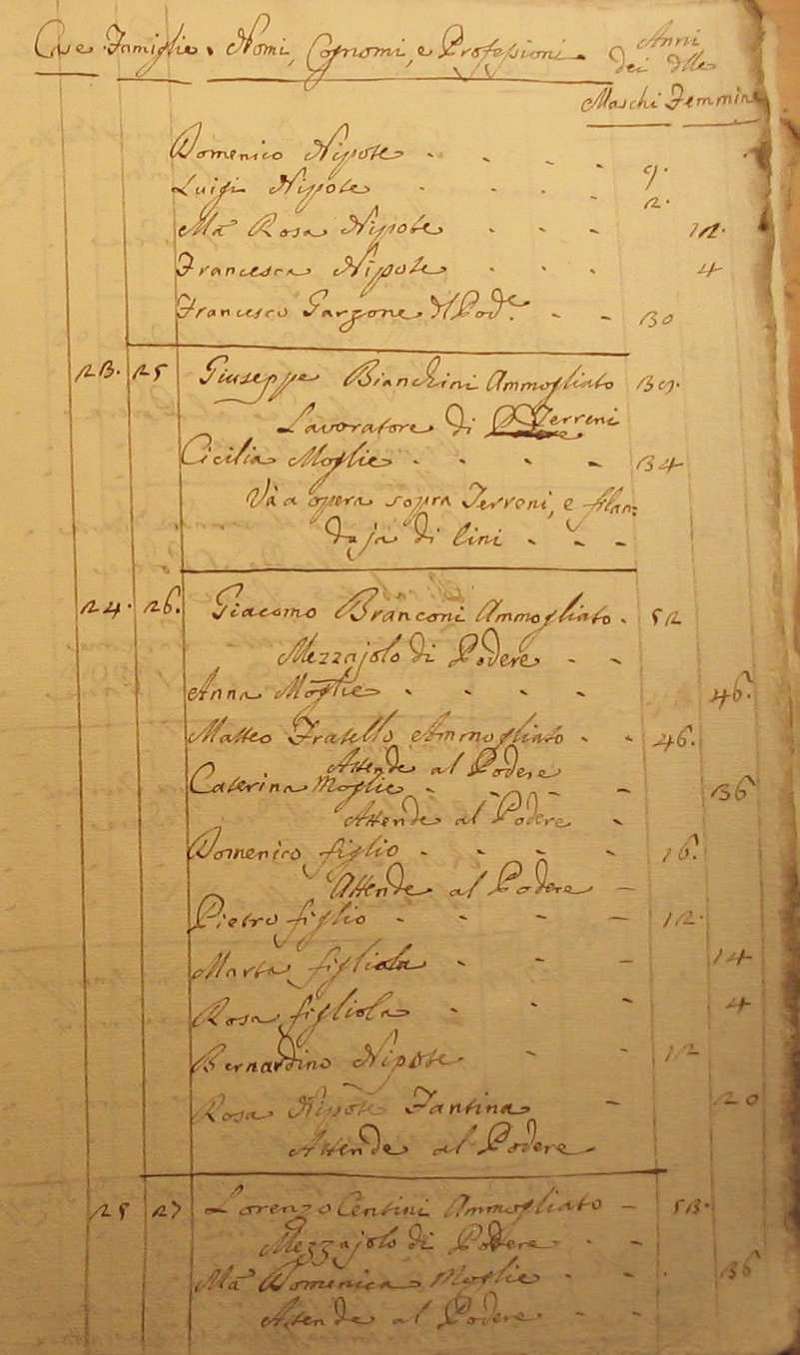 Case Famiglie, Nomi, Cognomi, e Professioni. Anni
dei dtte
Maschi Femmine
Domenico Nipote - - - - 9.
Luigi Nipote - - - - 2.
Ma. Rosa Nipote - - - 12.
Francesca Nipote - - - 4
Francesco Garzone d'Pode. - - 30
23. 25 Giuseppe Bianchini Ammogliato 39.
Lavoratore di Terreni
Cicilia Moglie - - - - 34
Và a opera sopra Terreni, e filan:
daja di lini - - -
24. 26. Giacomo Branconi Ammogliato. 52
Mezzajolo di Podere - -
Anna Moglie - - - - 46.
Matteo Fratello Ammogliato - - 46.
Attende al Podere
Caterina Moglie - - - - 36
Attende al Podere -
Domenico figlio - - - - 16.
Attende al Podere -
Pietro figlio - - - - 12.
Maria figliola - - - 14
Rosa figliola - - - 4
Bernardino Nipote - - 12
Rosa Nipote Fantina - 20
Attende al Podere -
25 27 Lorenzo Centini Ammogliato - 53.
Mezzajolo di Podere - -
Ma. Domenica Moglie - - - 36
Attende al Podere - -